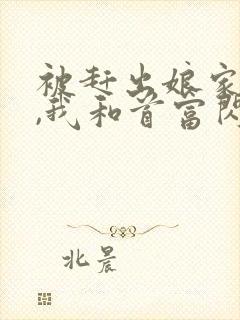 被赶出娘家
,我和首富闪
北晨